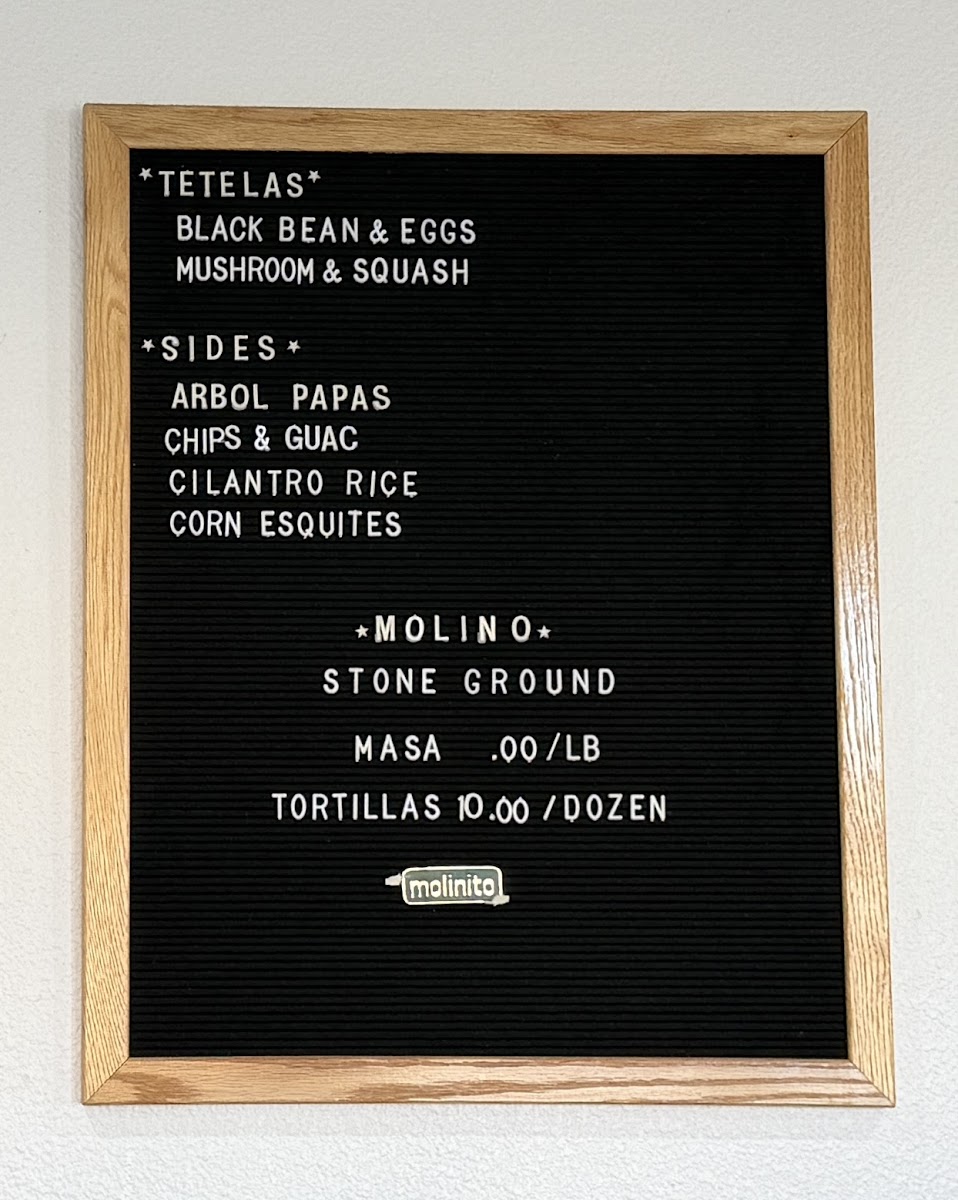 *TETELAS*
BLACK BEAN & EGGS
MUSHROOM & SQUASH
*SIDES*
ARBOL PAPAS
CHIPS & GUAC
CILANTRO RICE
CORN ESQUITES
*MOLINO*
STONE GROUND
MASA .00/LB
TORTILLAS 10.00/DOZEN
molinito